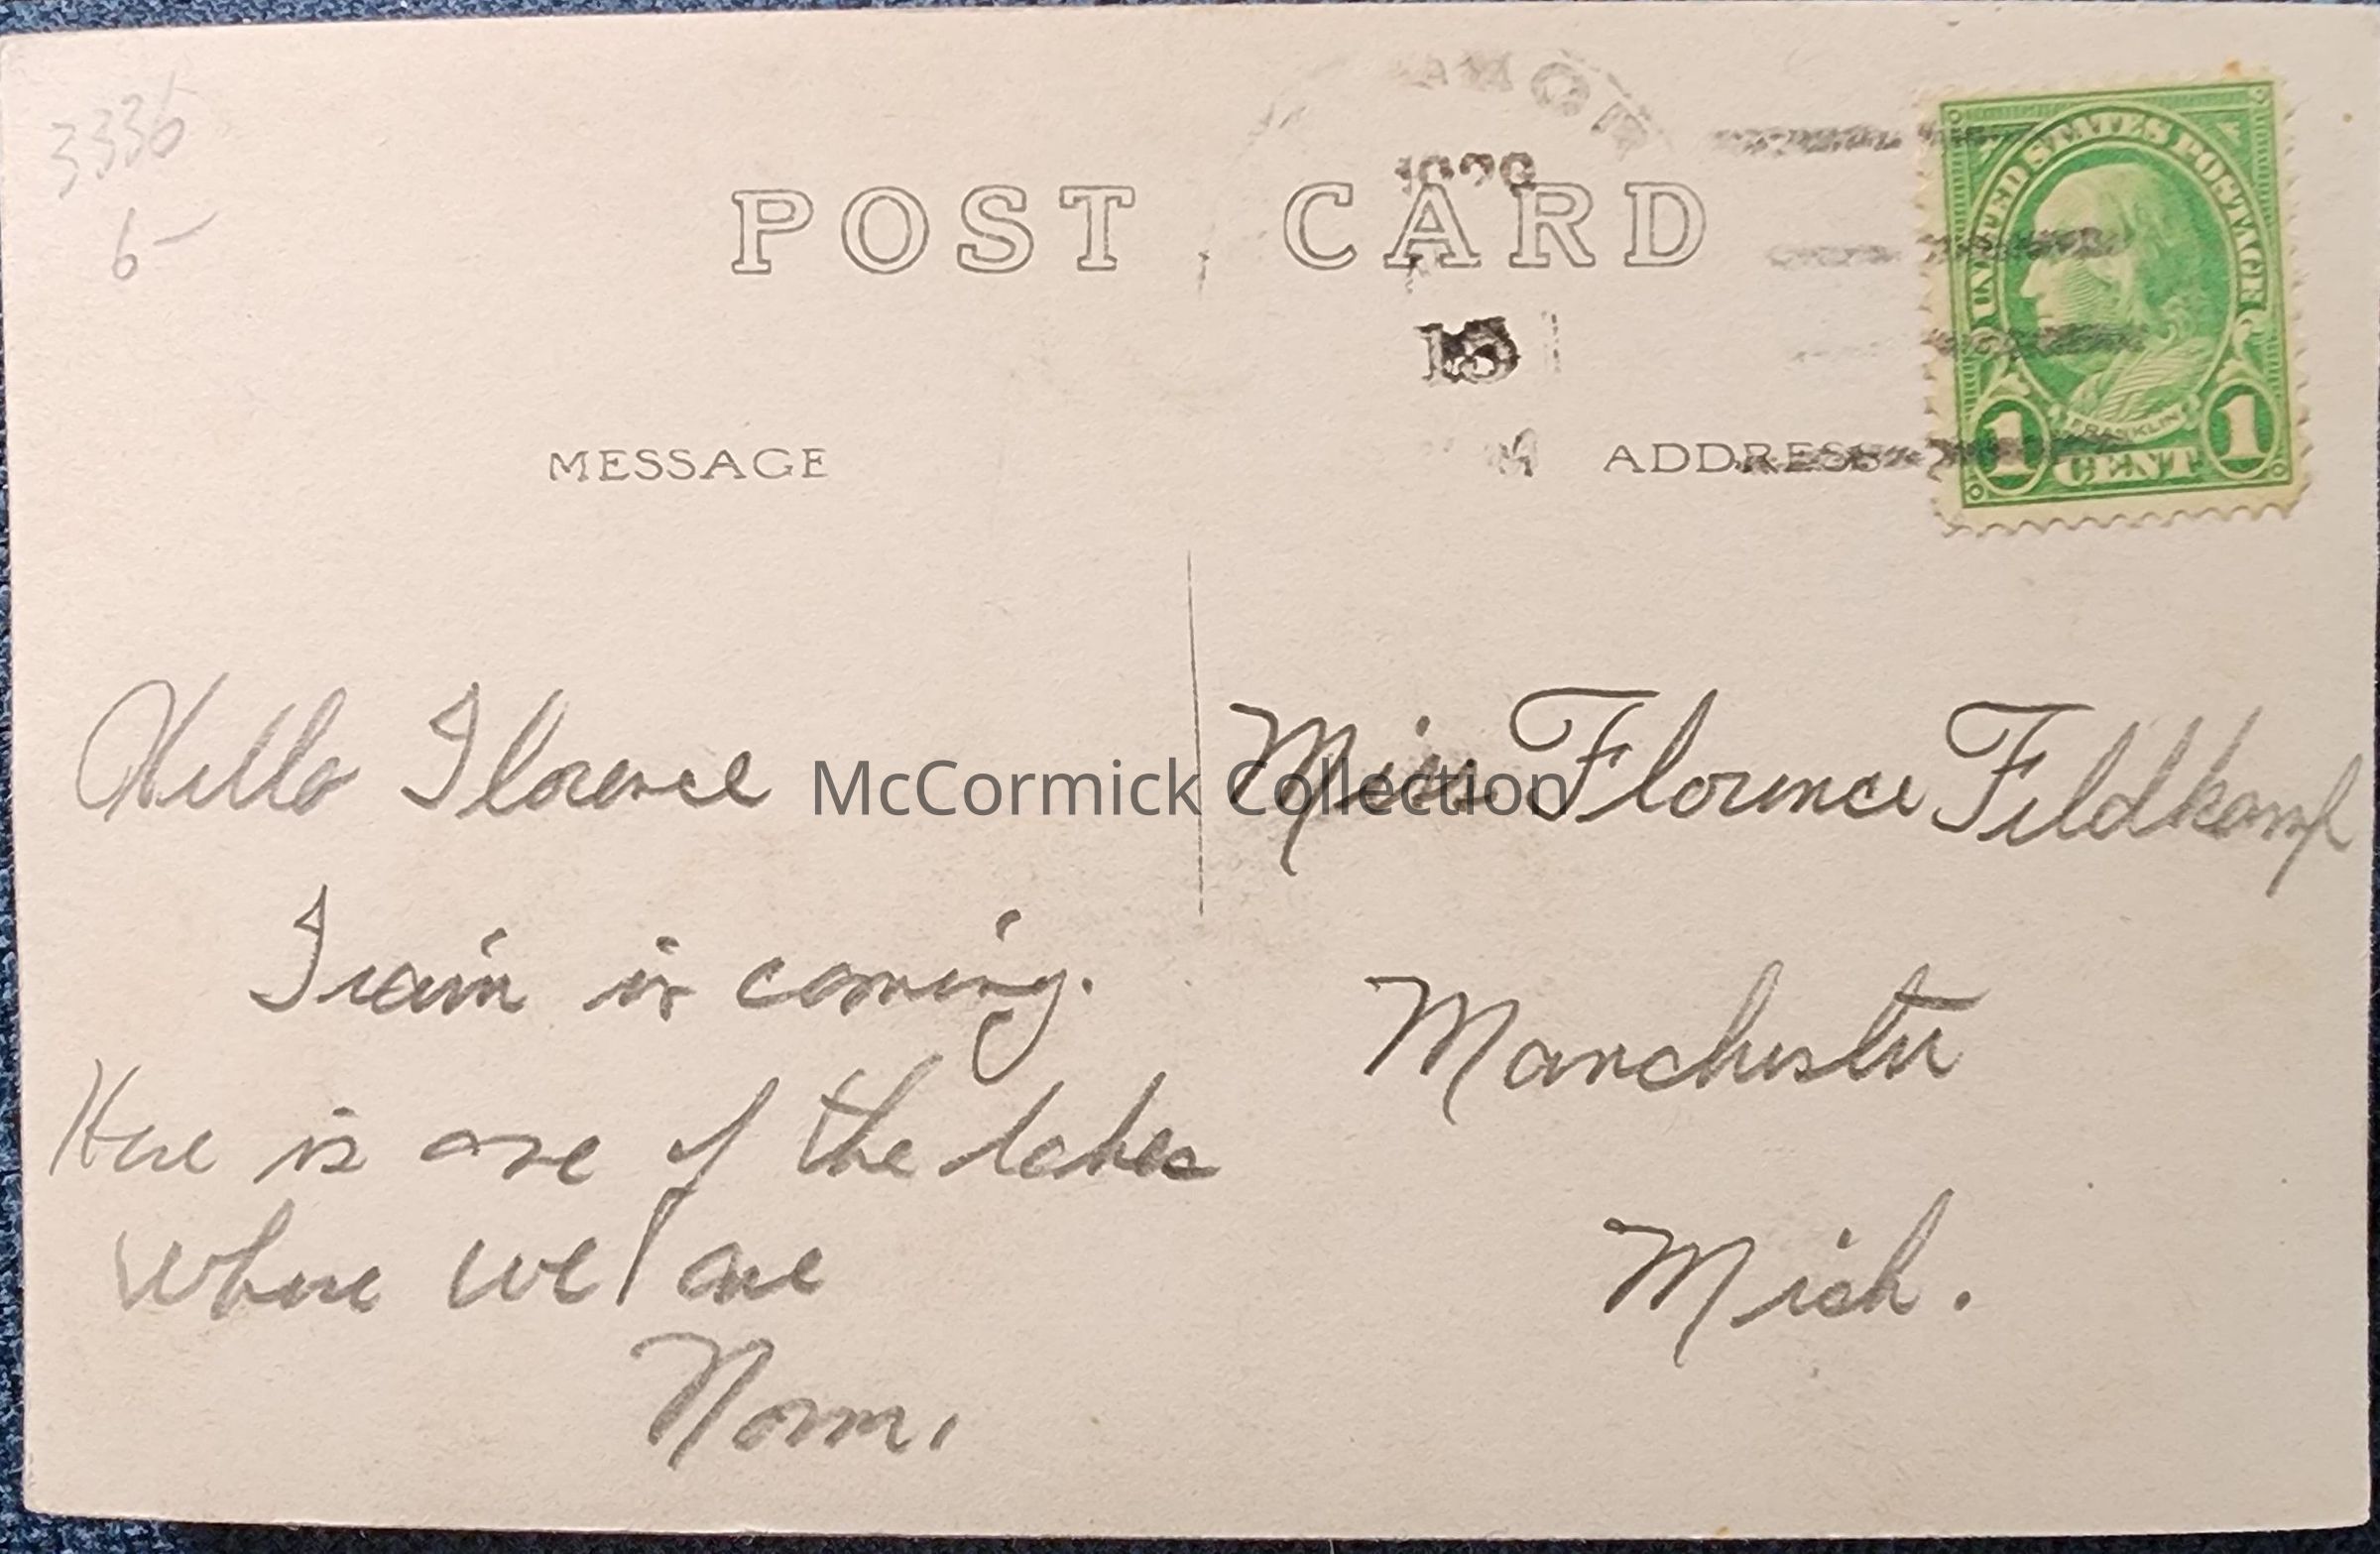 3336
6-
POST CARD
15
M
MESSAGE
ADDRESS
UNITED STATES POSTAGE
FRANKLIN
1 CENT 1
Hello Florence
Train is coming.
Here is one of the lakes
where we are
Norm.
Miss Florence Feldkamp
Manchester
Mich.
McCormick Collection